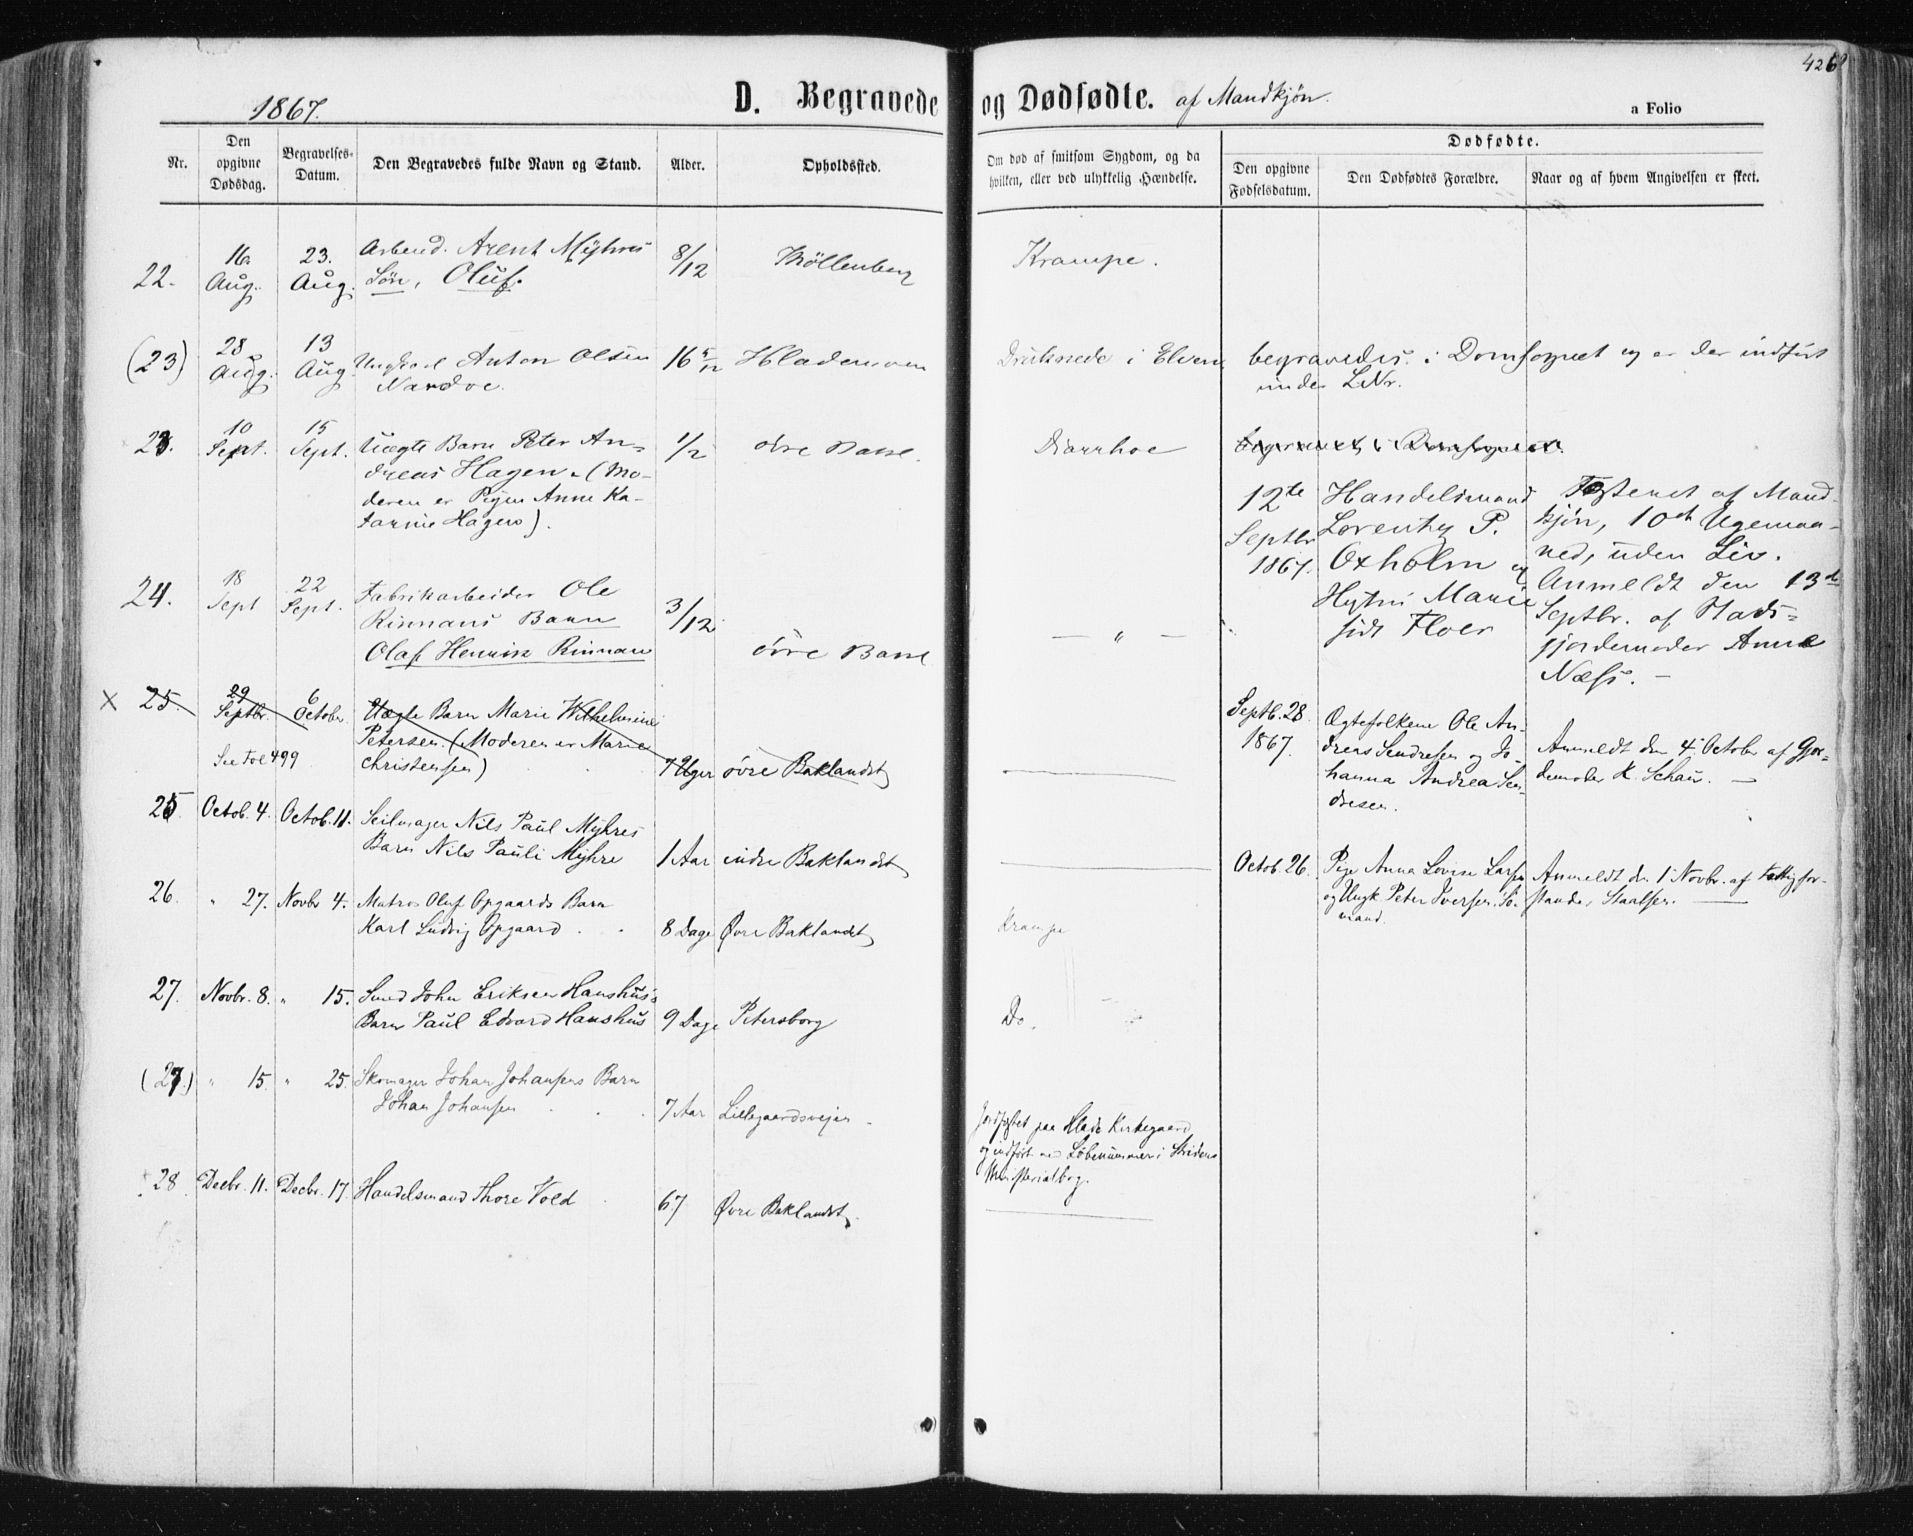 426
1867.
D. Begravede og Dødfødte. af Mandkjøn.
a Folio
Nr.
Den opgivne Dødsdag.
Begravelses-Datum.
Den Begravedes fulde Navn og Stand.
Alder.
Opholdssted.
Om død af smitsom Sygdom, og da
hvilken, eller ved ulykkelig Hændelse.
Dødfødte.
Den opgivne Fødselsdatum.
Den Dødfødtes Forældre.
Naar og af hvem Angivelsen er skeet.
22. 16 Aug. 23. Aug. Arbeid. Arent Myhres
Søn, Oluf. 8/12 Møllenberg Krampe.
(23) 28 Aug. 13 Aug. Ungkarl Anton Olsen
Nardoe. 16 5/12 Hlademoen Druknede i Elven
begravedes i Domsognet og er der indført
under L.Nr.
23. 10 Sept. 15 Sept. Uægte Barn Peter An-
dreas Hagen. (Mo-
deren er Pigen Anne Ka-
tarine Hagen). 1/2 øvre Bakl. Diarrhoe
begravet i Domsognet.
12te Septbr. 1867.
Handelsmand
Lorentz P.
Oxholm og
Hustru Marie
født Floer
Fosteret af Mand-
kjøn, 10de Ugemaa-
ned, uden Liv.
Anmeldt den 13de
Septbr. af Stads-
jordemoder Anne
Næss. —
24. 18 Sept 22 Sept. Fabrikarbeider Ole
Rinnans Barn
Olaf Henrik Rinnan 3/12 øvre Bakl — " —
x 25. 29 Septbr. 6 October Uægte Barn Marie Wilhelmine
Petersen. (Moderen er Marie
Christensen) 7 Uger øvre Baklandet
See Fol 499
Septb. 28. 1867.
Ægtefolkene Ole An-
dreas Sendresen og Jo-
hanna Andrea Sen-
dresen.
Anmeldt den 4 October af Gjor-
demoder K. Schau. —
25 Octob. 4. Octob. 11. Seilmager Nils Paul Myhres
Barn Nils Pauli Myhre 1 Aar indre Baklandet
Octob. 26. Pige Anna Lovise Larsen
og Ungk Peter Iversen, Sø-
mand.
Anmeldt den 1 Novbr. af Fattigfor-
stander Staalsen.
26. " 27. Novbr 4. Matros Oluf Opgaards Barn
Karl Ludvig Opgaard 8 Dage Øvre Baklandet Krampe
27. Novbr. 8. " 15. Smed John Eriksen Hanshus's
Barn Paul Edvard Hanshus 9 Dage Petersborg Do.
(27.) " 15. " 25. Skomager Johan Johansens Barn
Johan Johansen 7 Aar Lillegaardsveien.
Jordfæstet paa Hlade Kirkegaard
og indført med Løbenummer i Strindens
Ministerialbog.
28 Decbr. 11. Decbr. 17. Handelsmand Thore Vold 67 Øvre Baklandet.